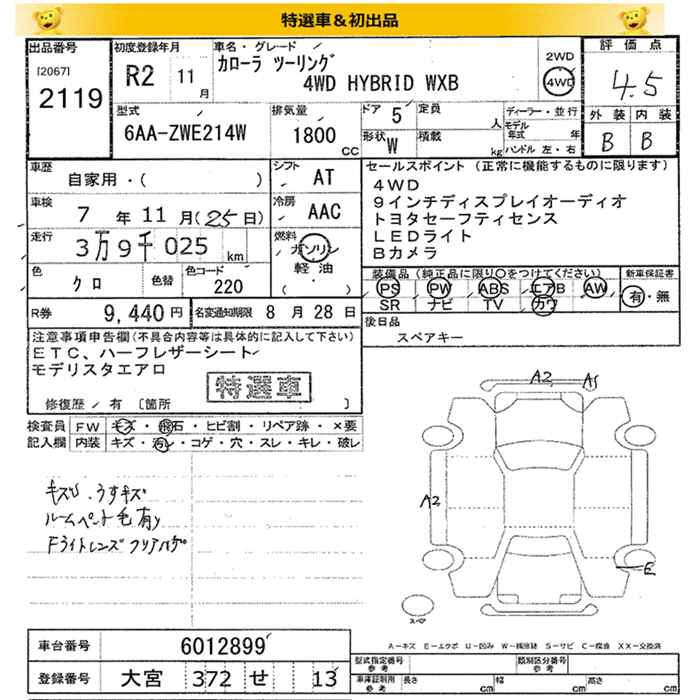 特選車&初出品
出品番号
[2067]
2119
初度登録年月
R2 11月
車名・グレード
カローラ ツーリング
4WD HYBRID WXB
2WD
4WD
評価点
4.5
外装 内装
B B
型式
6AA-ZWE214W
排気量
1800 CC
ドア 5
定員 人
形状 W
積載 kg
ディーラー・並行
モデル年式 年
ハンドル 左・右
車歴
自家用・( )
シフト AT
車検
7年11月(25日)
冷房 AAC
走行
3万9千025 km
燃料
ガソリン
軽油・
( )
色 クロ
色替
色コード 220
R券 9,440円
名変通知期限 8月28日
セールスポイント (正常に機能するものに限ります)
4WD
9インチディスプレイオーディオ
トヨタセーフティセンス
LEDライト
Bカメラ
装備品(純正品に限り○をつけてください)
PS PW ABS エアB AW
SR ナビ TV カワ
新車保証書
有・無
後日品
スペアキー
注意事項申告欄(不具合内容等は具体的に記入して下さい)
ETC、ハーフレザーシート
モデリスタエアロ
特選車
修復歴/有 [箇所 ]
検査員記入欄
FW キズ・飛石・ヒビ割・リペア跡・×要
内装 キズ・汚レ・コゲ・穴・スレ・キレ・破レ
キズU、うすキズ
ルームペット毛有り
Fライトレンズクリアハゲ
A2 A1
A2
E
スペア
A-キズ E-エクボ U-凹み W-補修跡 S-サビ C-腐蝕 XX-交換済
車台番号 6012899
登録番号 大宮 372 せ 13
型式指定番号 参考
類別区分番号 参考
車庫証明用 参考
長さ cm 幅 cm 高さ cm